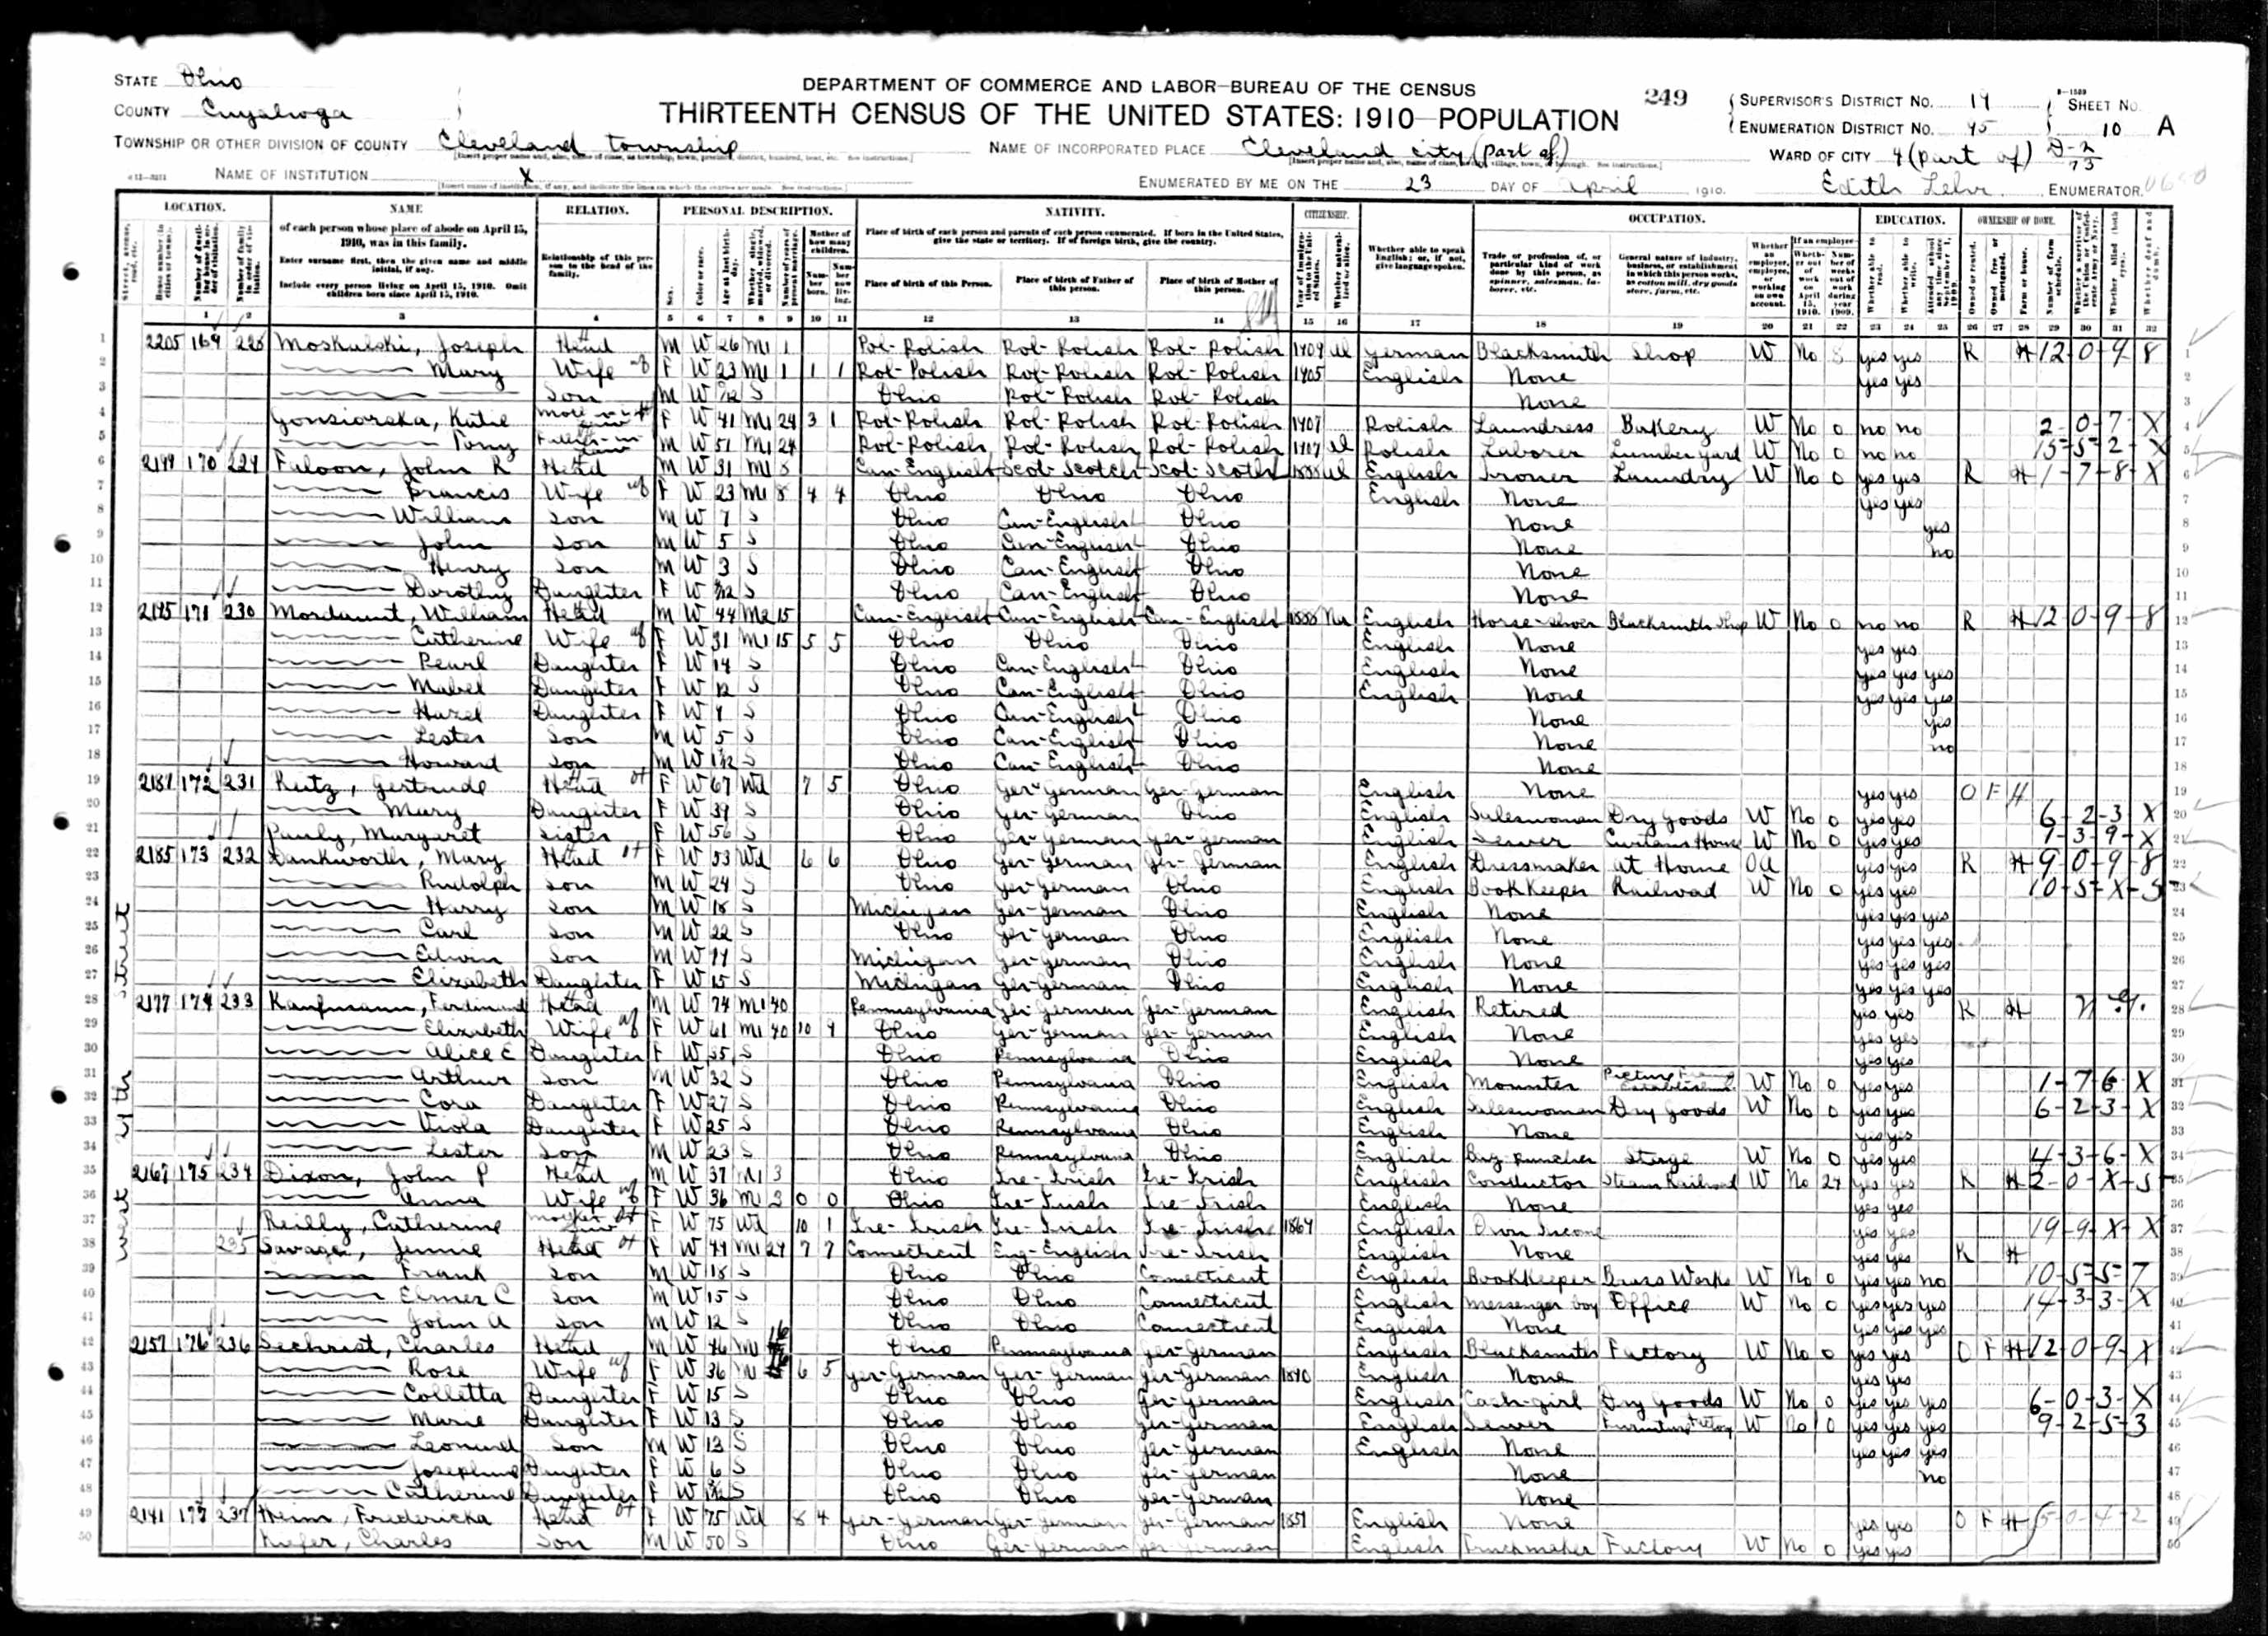 STATE Ohio
COUNTY Cuyahoga
TOWNSHIP OR OTHER DIVISION OF COUNTY Cleveland Township
NAME OF INSTITUTION X
DEPARTMENT OF COMMERCE AND LABOR—BUREAU OF THE CENSUS
THIRTEENTH CENSUS OF THE UNITED STATES: 1910—POPULATION
NAME OF INCORPORATED PLACE Cleveland city (part of)
ENUMERATED BY ME ON THE 23 DAY OF April 1910.
249
SUPERVISOR'S DISTRICT No. 19
ENUMERATION DISTRICT No. 45
SHEET No. 10 A
WARD OF CITY 4 (part of)
Edith Lehr ENUMERATOR.
LOCATION. NAME RELATION. PERSONAL DESCRIPTION. NATIVITY. CITIZENSHIP. OCCUPATION. EDUCATION. OWNERSHIP OF HOME.
of each person whose place of abode on April 15, 1910, was in this family.
Enter surname first, then the given name and middle initial, if any.
Include every person living on April 15, 1910. Omit children born since April 15, 1910.
Relationship of this person to the head of the family.
Place of birth of each person and parents of each person enumerated. If born in the United States, give the state or territory. If of foreign birth, give the country.
Place of birth of this Person. Place of birth of Father of this person. Place of birth of Mother of this person.
Whether able to speak English; or, if not, give language spoken.
Trade or profession of, or particular kind of work done by this person, as spinner, salesman, laborer, etc.
General nature of industry, business, or establishment in which this person works, as cotton mill, dry goods store, farm, etc.
1 2 3 4 5 6 7 8 9 10 11 12 13 14 15 16 17 18 19 20 21 22 23 24 25 26 27 28 29 30 31 32
1 2205 169 Moskulski, Joseph Head M W 26 M1 1 Pol-Polish Pol-Polish Pol-Polish 1909 al German Blacksmith Shop W No yes yes R H 12-0-9-8
2 Mary Wife F W 23 M1 1 1 1 Pol-Polish Pol-Polish Pol-Polish 1905 English None yes yes
3 Son M W S Ohio Pol-Polish Pol-Polish None
4 Gonsiorska, Katie F W 41 M1 24 3 1 Pol-Polish Pol-Polish Pol-Polish 1907 Polish Laundress Bakery W No 0 no no 2-0-7-X
5 Tony Father-in-law M W 51 M1 24 Pol-Polish Pol-Polish Pol-Polish 1907 al Polish Laborer Lumber yard W No 0 no no 15-5-2-X
6 2199 170 229 Faloon, John R Head M W 31 M1 8 Can-English Scot-Scotch Scot-Scotch 1888 al English Ironer Laundry W No 0 yes yes R H 1-7-8-X
7 Francis Wife F W 23 M1 8 4 4 Ohio Ohio Ohio English None yes yes
8 William Son M W 7 S Ohio Can-English Ohio None yes
9 John Son M W 5 S Ohio Can-English Ohio None no
10 Henry Son M W 3 S Ohio Can-English Ohio None
11 Dorothy Daughter F W S Ohio Can-English Ohio None
12 2195 171 230 Mordaunt, William Head M W 44 M2 15 Can-English Can-English Can-English 1888 Na English Horse-shoer Blacksmith Shop W No 0 no no R H 12-0-9-8
13 Catherine Wife F W 31 M1 15 5 5 Ohio Ohio Ohio English None yes yes
14 Pearl Daughter F W 14 S Ohio Can-English Ohio English None yes yes yes
15 Mabel Daughter F W 12 S Ohio Can-English Ohio English None yes yes yes
16 Hazel Daughter F W 9 S Ohio Can-English Ohio None yes
17 Lester Son M W 5 S Ohio Can-English Ohio None no
18 Howard Son M W S Ohio Can-English Ohio None
19 2187 172 231 Rutz, Gertrude Head F W 67 Wd 7 5 Ohio Ger-German Ger-German English None yes yes O F H
20 Mary Daughter F W 39 S Ohio Ger-German Ohio English Saleswoman Dry goods W No 0 yes yes 6-2-3-X
21 Pauly, Margaret Sister F W 56 S Ohio Ger-German Ger-German English Sewer Curtains House W No 0 yes yes 9-3-9-X
22 2185 173 232 Dankworth, Mary Head F W 53 Wd 6 6 Ohio Ger-German Ger-German English Dressmaker at Home OA yes yes R H 9-0-9-8
23 Rudolph Son M W 24 S Ohio Ger-German Ohio English Bookkeeper Railroad W No 0 yes yes 10-5-X-5
24 Harry Son M W 18 S Michigan Ger-German Ohio English None yes yes yes
25 Carl Son M W 22 S Ohio Ger-German Ohio English None yes yes yes
26 Edwin Son M W S Michigan Ger-German Ohio English None yes yes yes
27 Elizabeth Daughter F W 15 S Michigan Ger-German Ohio English None yes yes yes
28 2177 174 233 Kaufmann, Ferdinand Head M W 74 M1 40 Pennsylvania Ger-German Ger-German English Retired yes yes R H
29 Elizabeth Wife F W 61 M1 40 10 9 Ohio Ger-German Ger-German English None yes yes
30 Alice E Daughter F W 35 S Ohio Pennsylvania Ohio English None yes yes
31 Arthur Son M W 32 S Ohio Pennsylvania Ohio English Mounter Picture Frame W No 0 yes yes 1-7-6-X
32 Cora Daughter F W 27 S Ohio Pennsylvania Ohio English Saleswoman Dry goods W No 0 yes yes 6-2-3-X
33 Viola Daughter F W 25 S Ohio Pennsylvania Ohio English None yes yes
34 Lester Son M W 23 S Ohio Pennsylvania Ohio English W No 0 yes yes 4-3-6-X
35 2167 175 234 Dixon, John P Head M W 37 M1 3 Ohio Ire-Irish Ire-Irish English Conductor Steam Railroad W No 24 yes yes R H 2-0-X-5
36 Anna Wife F W 36 M1 3 0 0 Ohio Ire-Irish Ire-Irish English None yes yes
37 Reilly, Catherine F W 75 Wd 10 1 Ire-Irish Ire-Irish Ire-Irish 1864 English Own Income yes yes 19-9-X-X
38 235 Savage, Jennie Head F W 49 M1 29 7 7 Connecticut Eng-English Ire-Irish English None yes yes R H
39 Frank Son M W 18 S Ohio Ohio Connecticut English Bookkeeper Brass Works W No 0 yes yes no 10-5-5-7
40 Elmer C Son M W 15 S Ohio Ohio Connecticut English Messenger boy Office W No 0 yes yes yes 14-3-3-X
41 John A Son M W 12 S Ohio Ohio Connecticut English None yes yes yes
42 2157 176 236 Sechrist, Charles Head M W 46 M1 16 Ohio Pennsylvania Ger-German English Blacksmith Factory W No 0 yes yes O F H 12-0-9-X
43 Rose Wife F W 36 M1 16 6 5 Ger-German Ger-German Ger-German 1890 English None yes yes
44 Colletta Daughter F W 15 S Ohio Ohio Ger-German English Cash-girl Dry goods W No 0 yes yes yes 6-0-3-X
45 Marie Daughter F W 13 S Ohio Ohio Ger-German English Sewer Furniture factory W No 0 yes yes yes 9-2-5-3
46 Leonard Son M W 13 S Ohio Ohio Ger-German English None yes yes yes
47 Josephine Daughter F W 6 S Ohio Ohio Ger-German None no
48 Catherine Daughter F W S Ohio Ohio Ger-German None
49 2141 177 237 Heim, Fredericka Head F W 75 Wd 8 4 Ger-German Ger-German Ger-German 1851 English None yes yes O F H 5-0-4-2
50 Kiefer, Charles Son M W 50 S Ohio Ger-German Ger-German English Trunkmaker Factory W No 0 yes yes